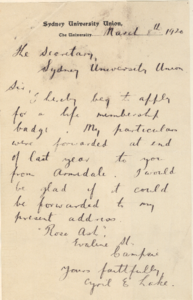 Sydney University Union,
The University
March 8th 1920
The Secretary,
Sydney University Union
Sir,
I hereby beg to apply
for a life membership
badge. My particulars
were forwarded at end
of last year to you
from Armidale. I would
be glad if it could
be forwarded to my
present address.
"Rose Ash"
Evaline St.
Campsie
Yours faithfully,
Cyril E. Lake.